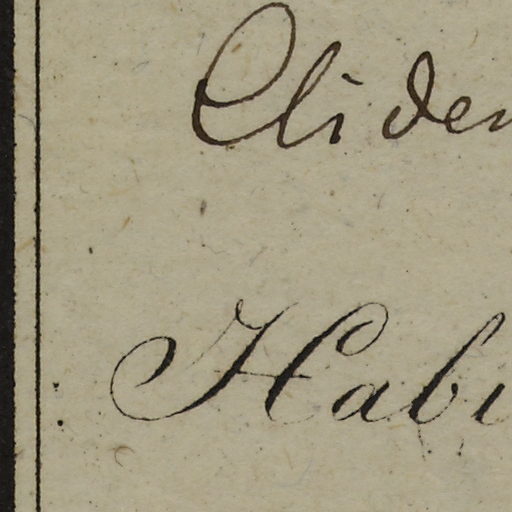 Cliden
Habi